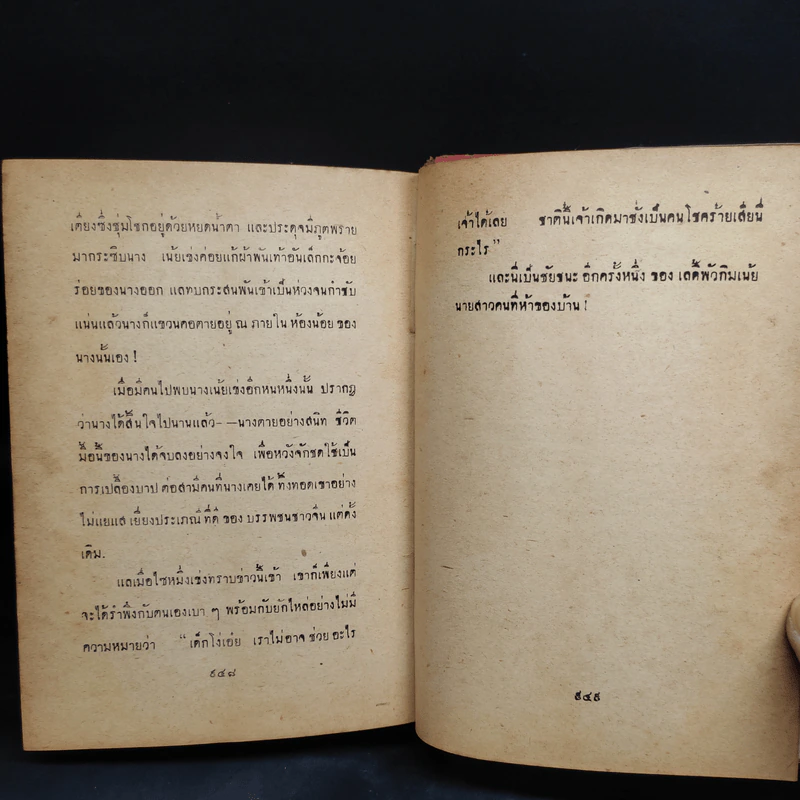 เตียงซึ่งชุ่มโชกอยู่ด้วยหยดน้ำตา และประดุจมีภูตพราย
มากระซิบนาง เน้ยเข่งค่อยแก้ผ้าพันเท้าอันเล็กกะจ้อย
ร่อยของนางออก แลทบกระสนพันเข้าเป็นห่วงจนกำชับ
แน่นแล้วนางก็แขวนคอตายอยู่ ณ ภายใน ห้องน้อย ของ
นางนั้นเอง !
เมื่อมีคนไปพบนางเน้ยเข่งอีกหนหนึ่งนั้น ปรากฏ
ว่านางได้สิ้นใจไปนานแล้ว- —นางตายอย่างสนิท ชีวิต
มื้อนี้ของนางได้จบลงอย่างจงใจ เพื่อหวังจักชดใช้เป็น
การเปลื้องบาป ต่อสามีคนที่นางเคยได้ ทิ้งทอดเขาอย่าง
ไม่แยแส เยี่ยงประเภณี ที่ดี ของ บรรพชนชาวจีน แต่ดั้ง
เดิม.
แลเมื่อไซหมึ่งเข่งทราบข่าวนี้เข้า เขาก็เพียงแต่
จะได้รำพึงกับตนเองเบา ๆ พร้อมกับยักไหล่อย่างไม่มี
ความหมายว่า “เด็กโง่เอ๋ย เราไม่อาจ ช่วย อะไร
๙๔๘
เจ้าได้เลย ชาตินี้เจ้าเกิดมาช่างเป็นคนโชคร้ายเสียนี่
กระไร”
และนี่เป็นชัยชนะ อีกครั้งหนึ่ง ของ เลดี้พัวกิมเน้ย
นายสาวคนที่ห้าของบ้าน !
๙๔๙